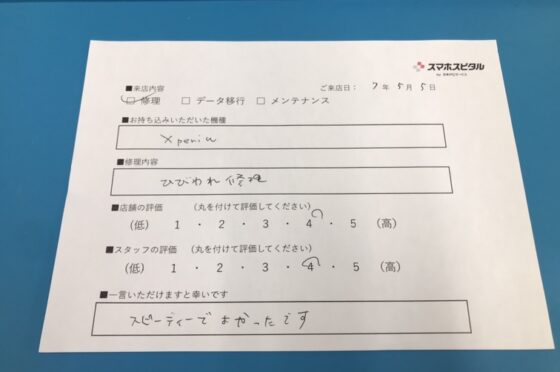 スマホスピタル
■来店内容
ご来店日： 7年5月5日
□ 修理 □ データ移行 □ メンテナンス
■お持ち込みいただいた機種
Xperia
■修理内容
ひびわれ修理
■店舗の評価 （丸を付けて評価してください）
（低） 1 ・ 2 ・ 3 ・ 4 ・ 5 （高）
■スタッフの評価 （丸を付けて評価してください）
（低） 1 ・ 2 ・ 3 ・ 4 ・ 5 （高）
■一言いただけますと幸いです
スピーディーでよかったです